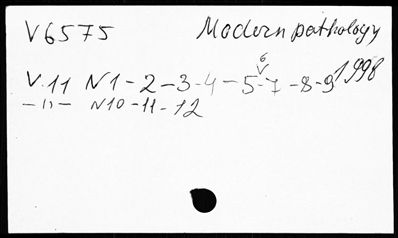 V6575 Modern pathology
1998
V.11 N1-2-3-4-5-6-7-8-9
—"— N10-11-12